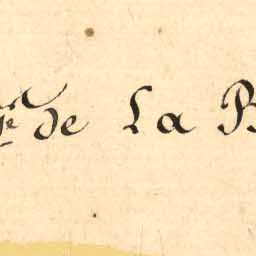 de La B